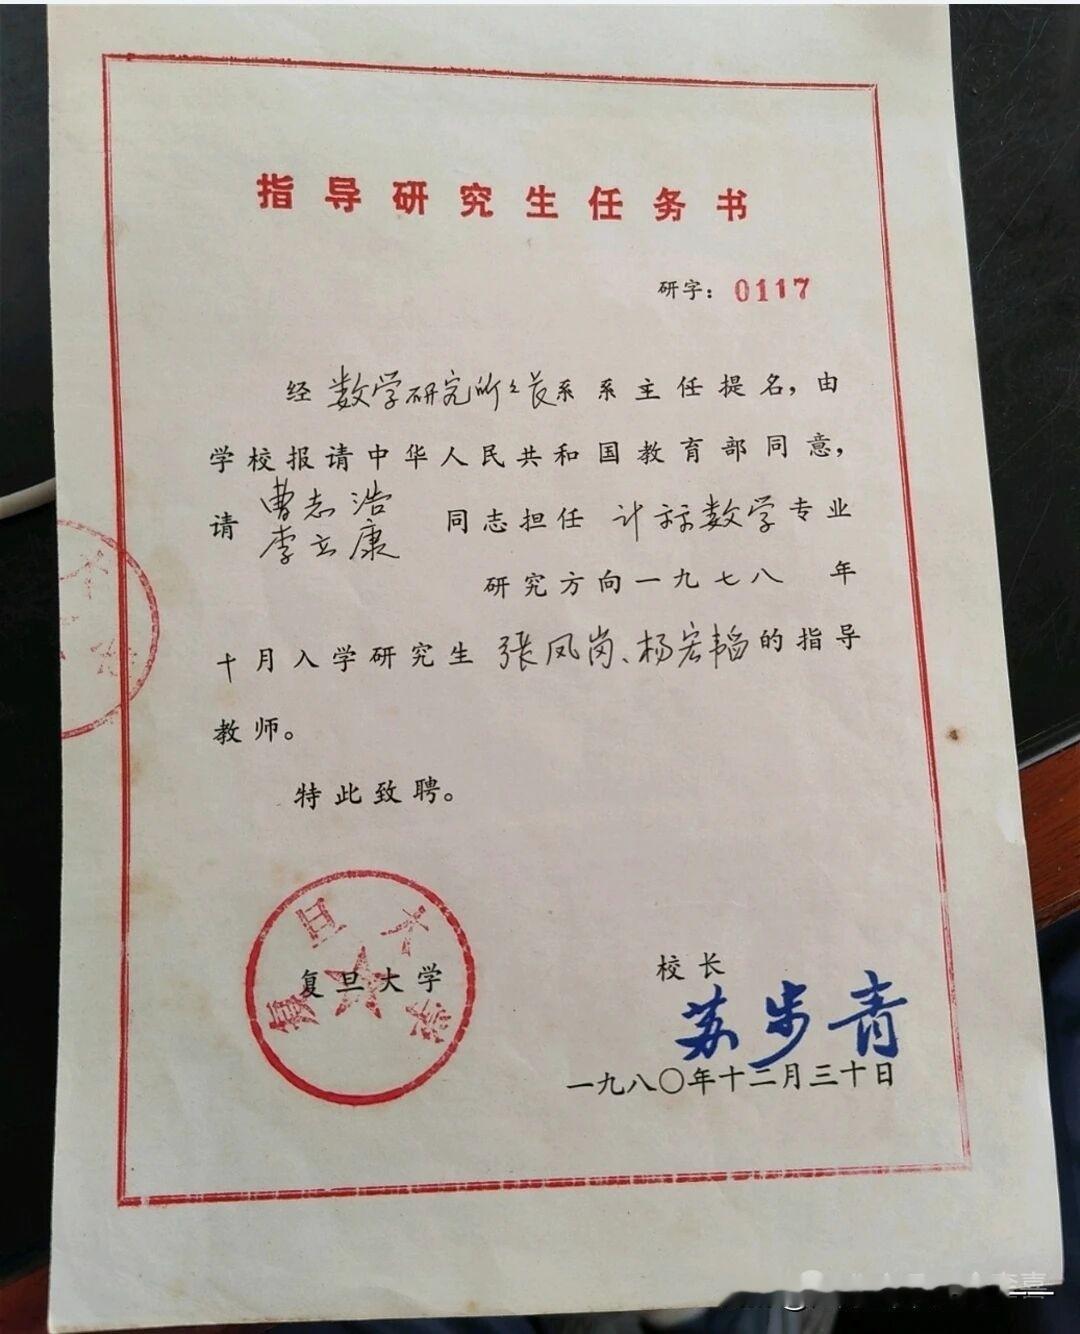 指导研究生任务书
研字：0117
经数学研究所所长系系主任提名，由
学校报请中华人民共和国教育部同意，
请 曹志浩 同志担任 计算数学专业
李立康
研究方向一九七八 年
十月入学研究生 张凤岗、杨宏韬的指导
教师。
特此致聘。
复旦大学
复旦大学
校长
苏步青
一九八〇年十二月三十日